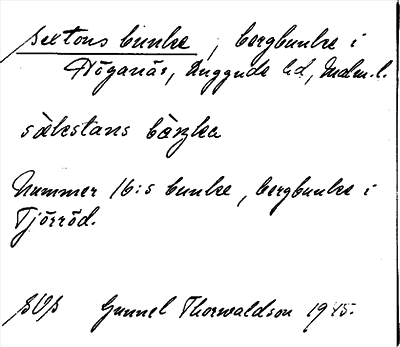 sextons bunke, bergbunke i
Höganäs, Luggude hd, Malm.l.
säkstans båŋka
Nummer 16:s bunke, bergbunke i
Tjörröd.
Gunnel Thorwaldson 1945.